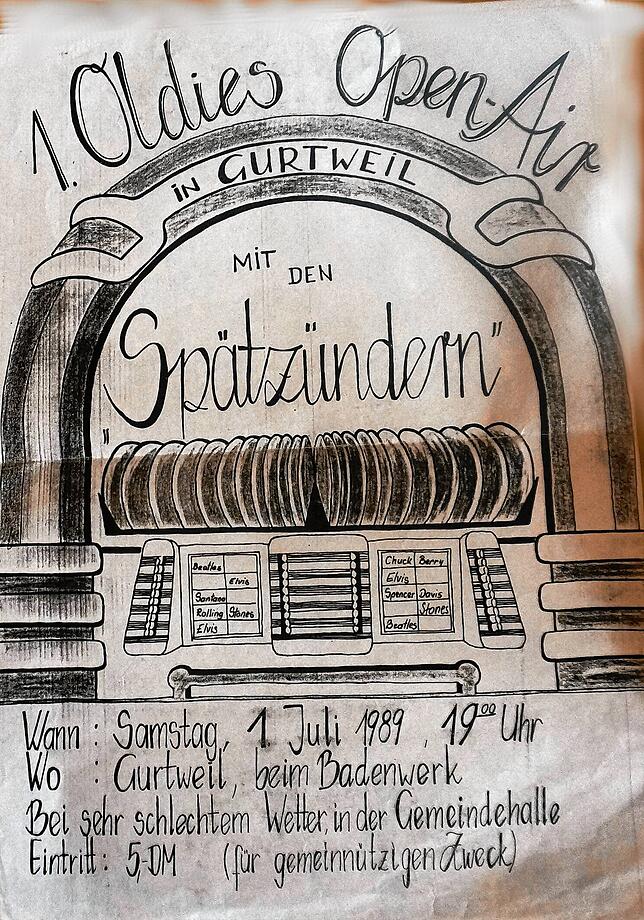 1. Oldies Open-Air
in GURTWEIL
MIT DEN
"Spätzündern"
Beatles
Elvis
Santana
Rolling Stones
Elvis
Chuck Berry
Elvis
Spencer Davis
Stones
Beatles
Wann : Samstag, 1 Juli 1989, 19⁰⁰ Uhr
Wo : Gurtweil, beim Badenwerk
Bei sehr schlechtem Wetter, in der Gemeindehalle
Eintritt: 5,-DM (für gemeinnützigen Zweck)